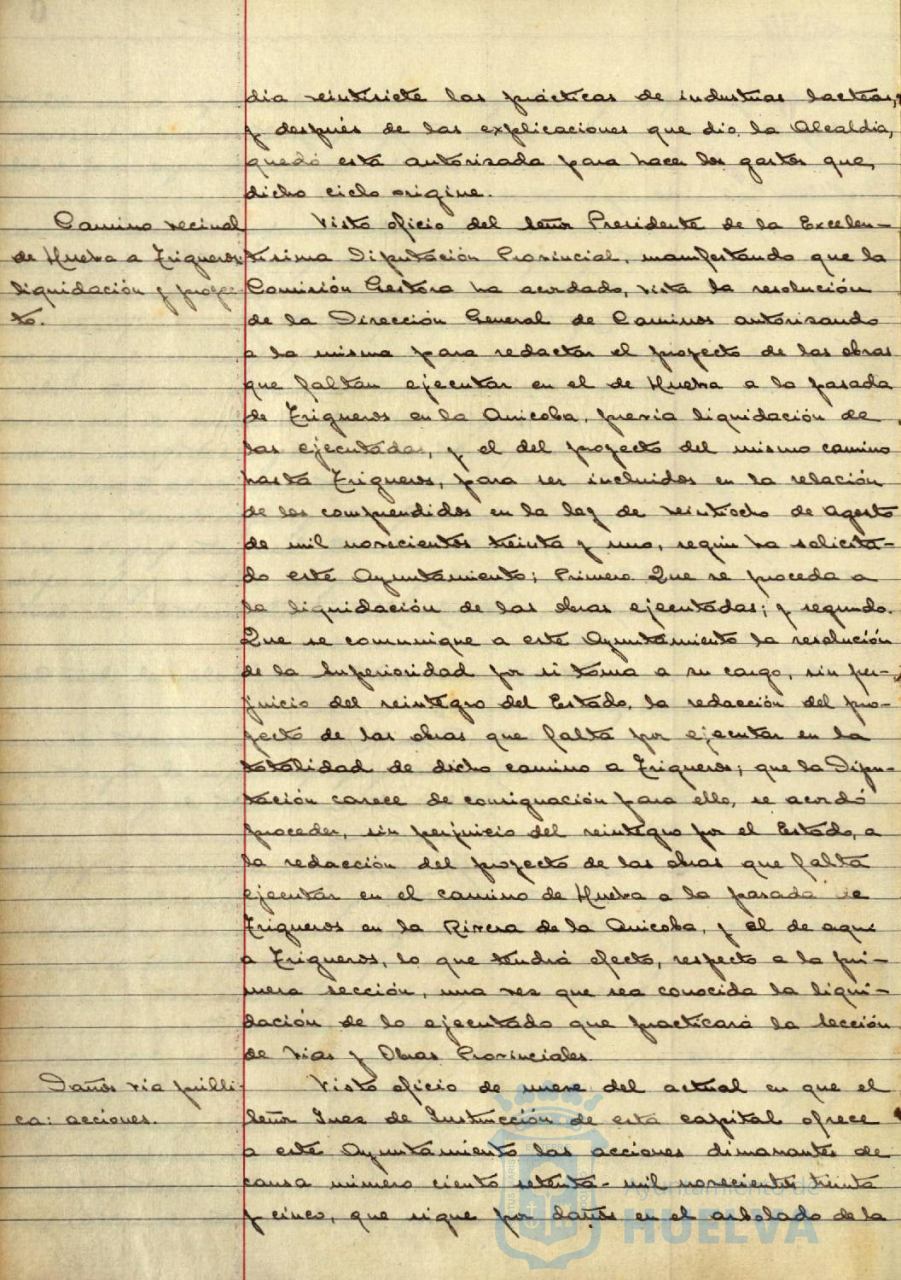 dia veintisiete las prácticas de industrias lacteas,
y después de las explicaciones que dio la Alcaldia,
quedó esta autorizada para hacer los gastos que
dicho ciclo origine.
Camino vecinal
de Huelva a Trigueros:
liquidación y proyec-
to.
Visto oficio del Señor Presidente de la Excelen-
tisima Diputación Provincial, manifestando que la
Comisión Gestora ha acordado, vista la resolución
de la Dirección General de Caminos autorizando
a la misma para redactar el proyecto de las obras
que faltan ejecutar en el de Huelva a la pasada
de Trigueros en la Anicoba, previa liquidación de
las ejecutadas, y el del proyecto del mismo camino
hasta Trigueros, para ser incluidos en la relación
de los comprendidos en la ley de veintiocho de Agosto
de mil novecientos treinta y uno, según ha solicita-
do este Ayuntamiento; Primero. Que se proceda a
la liquidación de las obras ejecutadas; y segundo.
Que se comunique a este Ayuntamiento la resolución
de la Superioridad por si toma a su cargo, sin per-
juicio del reintegro del Estado, la redacción del pro-
yecto de las obras que falta por ejecutar en la
totalidad de dicho camino a Trigueros; que la Dipu-
tación carece de consignación para ello, se acordó
proceder, sin perjuicio del reintegro por el Estado, a
la redacción del proyecto de las obras que falta
ejecutar en el camino de Huelva a la pasada de
Trigueros en la Rivera de la Anicoba, y el de aqui
a Trigueros, lo que tendrá efecto, respecto a la pri-
mera sección, una vez que sea conocida la liqui-
dación de lo ejecutado que practicará la Sección
de Vias y Obras Provinciales.
Daños via públi-
ca: acciones.
Visto oficio de nueve del actual en que el
Señor Juez de Instrucción de esta capital ofrece
a este Ayuntamiento las acciones dimanantes de
causa número ciento setenta - mil novecientos treinta
y cinco, que sigue por daños en el arbolado de la
Ayuntamiento de
HUELVA